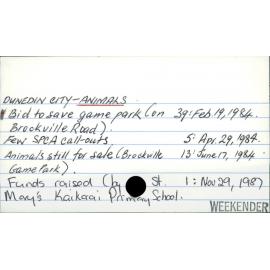 DUNEDIN CITY - ANIMALS
Bid to save game park (on 39: Feb 19, 1984.
Brockville Road).
Few SPCA call-outs 5: Apr. 29, 1984.
Animals still for sale (Brockville 13: June 17, 1984.
Game Park).
Funds raised (by St. 1: Nov 29, 1987
Mary's Kaikorai Primary School.
WEEKENDER